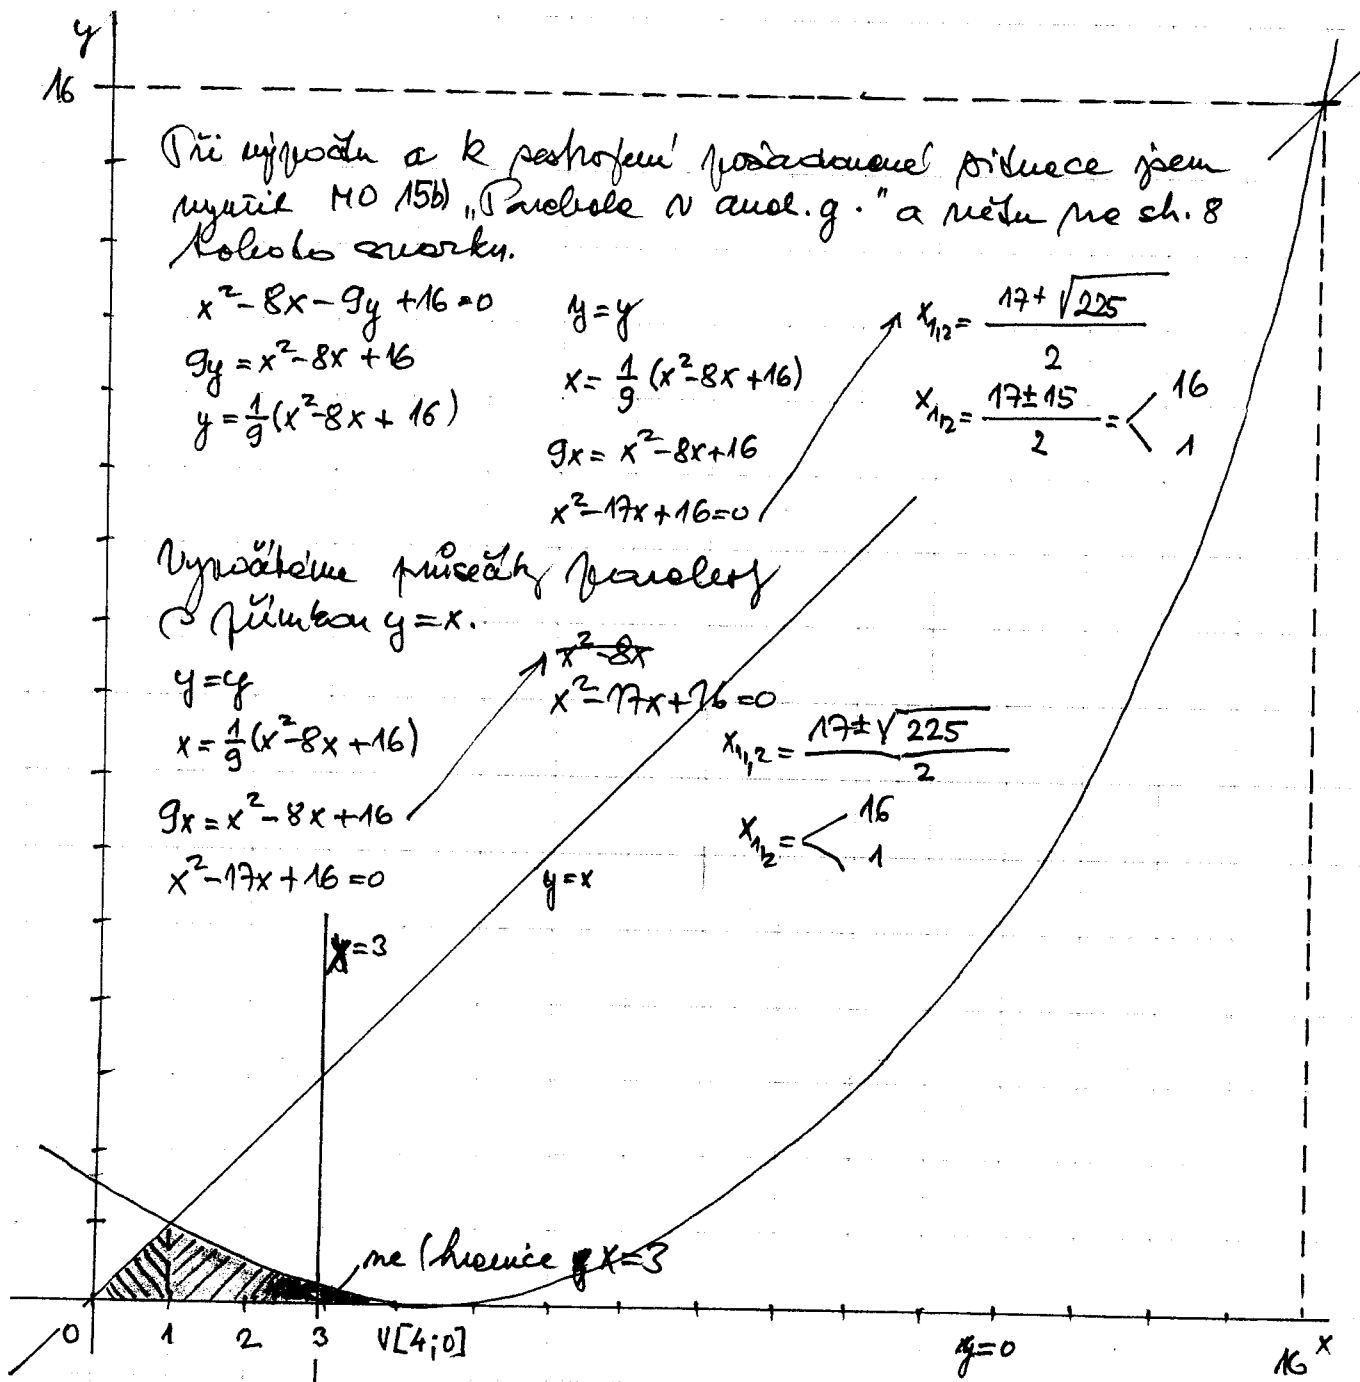 y
16
Při výpočtu a k sestrojení požadované situace jsem
využil MO 15b) „Parabola v anal. g." a větu na str. 8
tohoto svazku.
x²-8x-9y+16=0
9y=x²-8x+16
y=1/9(x²-8x+16)
y=y
x=1/9(x²-8x+16)
9x=x²-8x+16
x²-17x+16=0
x1,2=(17±√225)/2
x1,2=(17±15)/2=< 16
1
Vypočítáme průsečíky paraboly
s přímkou y=x.
y=y
x=1/9(x²-8x+16)
9x=x²-8x+16
x²-17x+16=0
x²-8x
x²-17x+16=0
x1,2=(17±√225)/2
x1,2=< 16
1
y=x
x=3
ne (hranice x=3
0 1 2 3 V[4;0] y=0 16 x